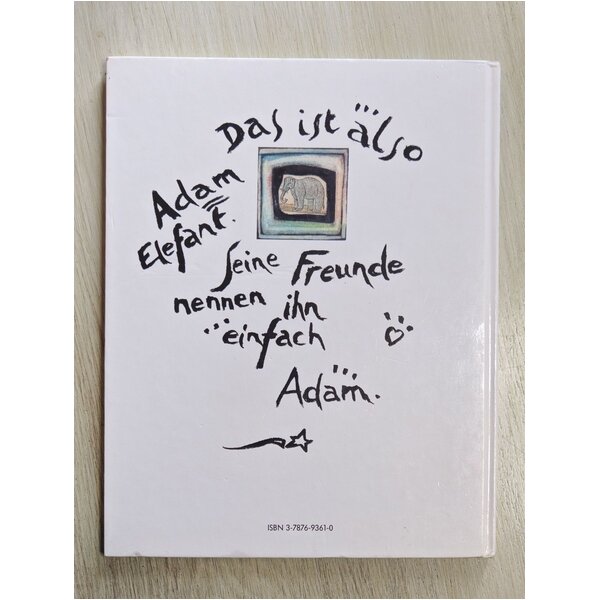 Das ist also
Adam
Elefant.
Seine Freunde
nennen ihn
einfach
Adam.
ISBN 3-7876-9361-0